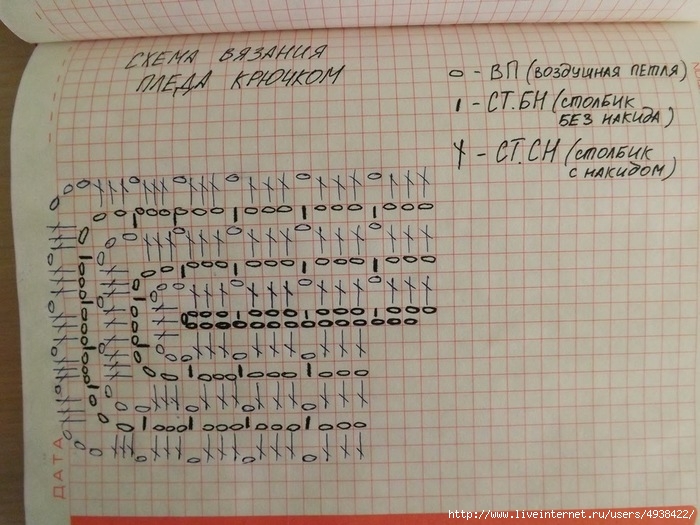 СХЕМА ВЯЗАНИЯ
ПЛЕДА КРЮЧКОМ
о - ВП (ВОЗДУШНАЯ ПЕТЛЯ)
ı - СТ.БН (СТОЛБИК
БЕЗ НАКИДА)
† - СТ.СН (СТОЛБИК
С НАКИДОМ)
ДАТА
http://www.liveinternet.ru/users/4938422/